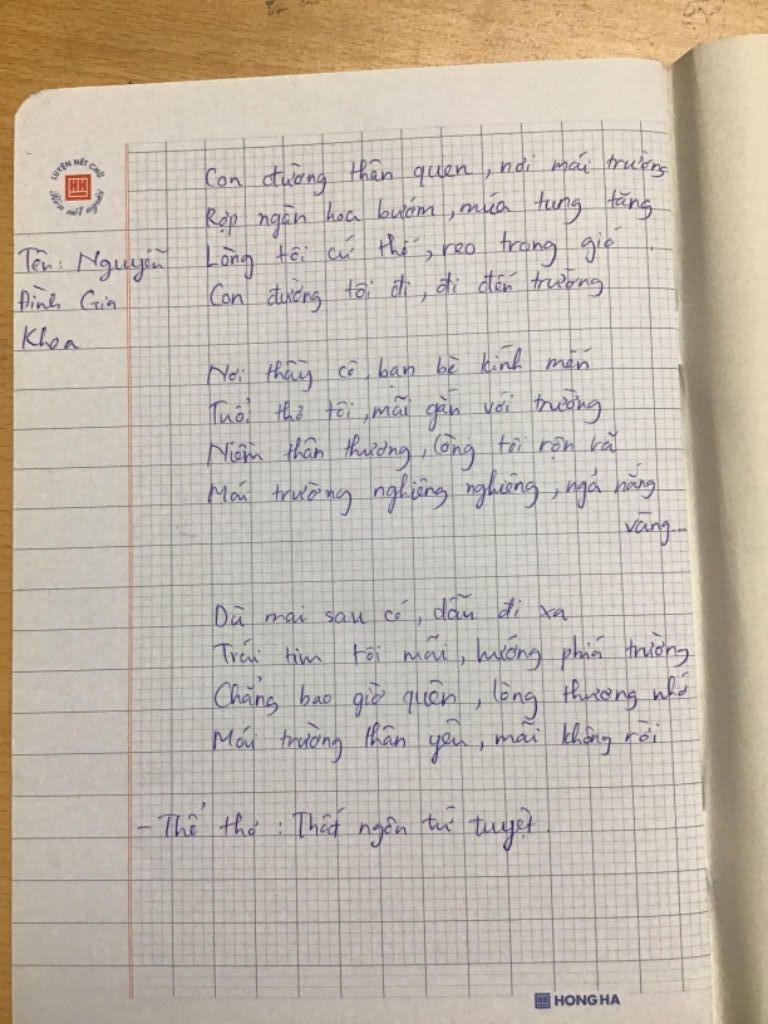 LUYỆN NÉT CHỮ
HH
Rèn nết người
Tên: Nguyễn
Đình Gia
Khoa
Con đường thân quen, nơi mái trường
Rợp ngàn hoa bướm, múa tung tăng
Lòng tôi cứ thế, reo trong gió
Con đường tôi đi, đi đến trường
Nơi thầy cô, bạn bè kính mến
Tuổi thơ tôi, mãi gắn với trường
Niềm thân thương, lòng tôi rộn rã
Mái trường nghiêng nghiêng, ngả nắng
vàng...
Dù mai sau có, dẫu đi xa
Trái tim tôi mãi, hướng phía trường
Chẳng bao giờ quên, lòng thương nhớ
Mái trường thân yêu, mãi không rời
- Thể thơ: Thất ngôn tứ tuyệt.
HH HONG HA